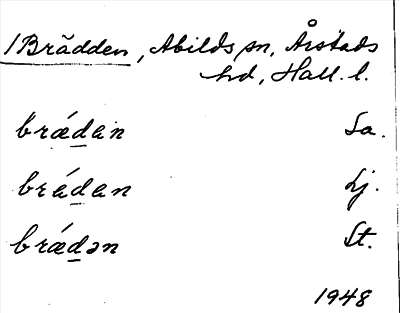 /Brädden, Abilds sn, Årstads
hd, Hall. l.
brǽdan Sa.
brédan Lj.
brǽdən St.
1948